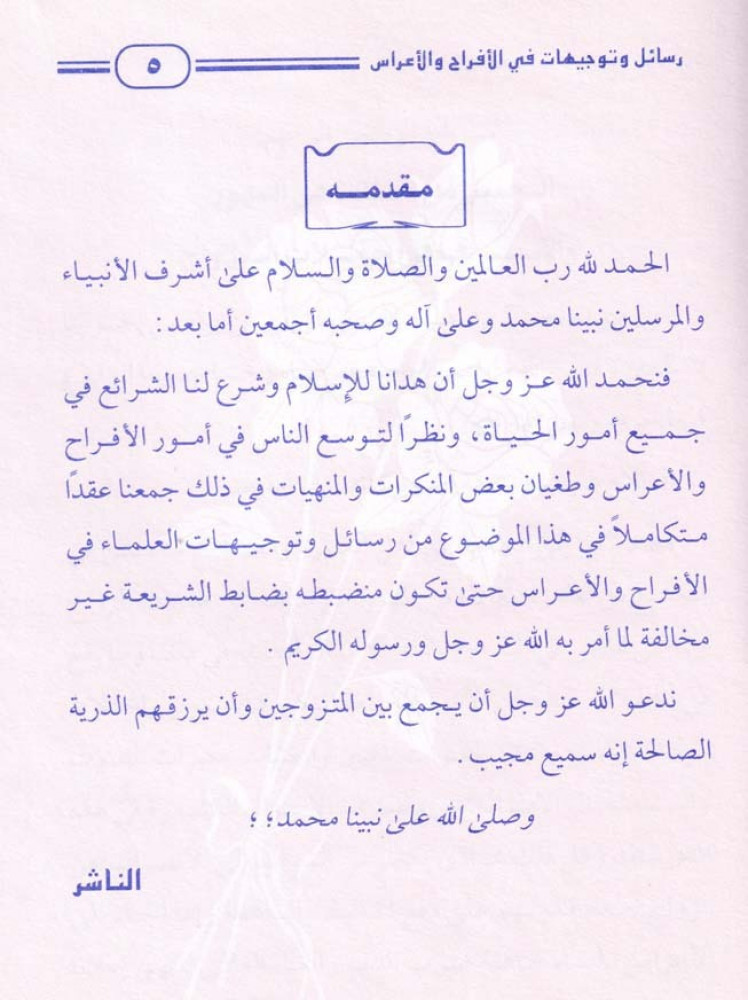 رسائل وتوجيهات في الأفراح والأعراس
٥
مقدمـه
الحمد لله رب العالمين والصلاة والسلام علىٰ أشرف الأنبياء
والمرسلين نبينا محمد وعلىٰ آله وصحبه أجمعين أما بعد :
فنحمد الله عز وجل أن هدانا للإسلام وشرع لنا الشرائع في
جميع أمور الحياة، ونظرًا لتوسع الناس في أمور الأفراح
والأعراس وطغيان بعض المنكرات والمنهيات في ذلك جمعنا عقدًا
متكاملاً في هذا الموضوع من رسائل وتوجيهات العلماء في
الأفراح والأعراس حتىٰ تكون منضبطه بضابط الشريعة غير
مخالفة لما أمر به الله عز وجل ورسوله الكريم .
ندعو الله عز وجل أن يجمع بين المتزوجين وأن يرزقهم الذرية
الصالحة إنه سميع مجيب .
وصلىٰ الله علىٰ نبينا محمد؛ ؛
الناشر